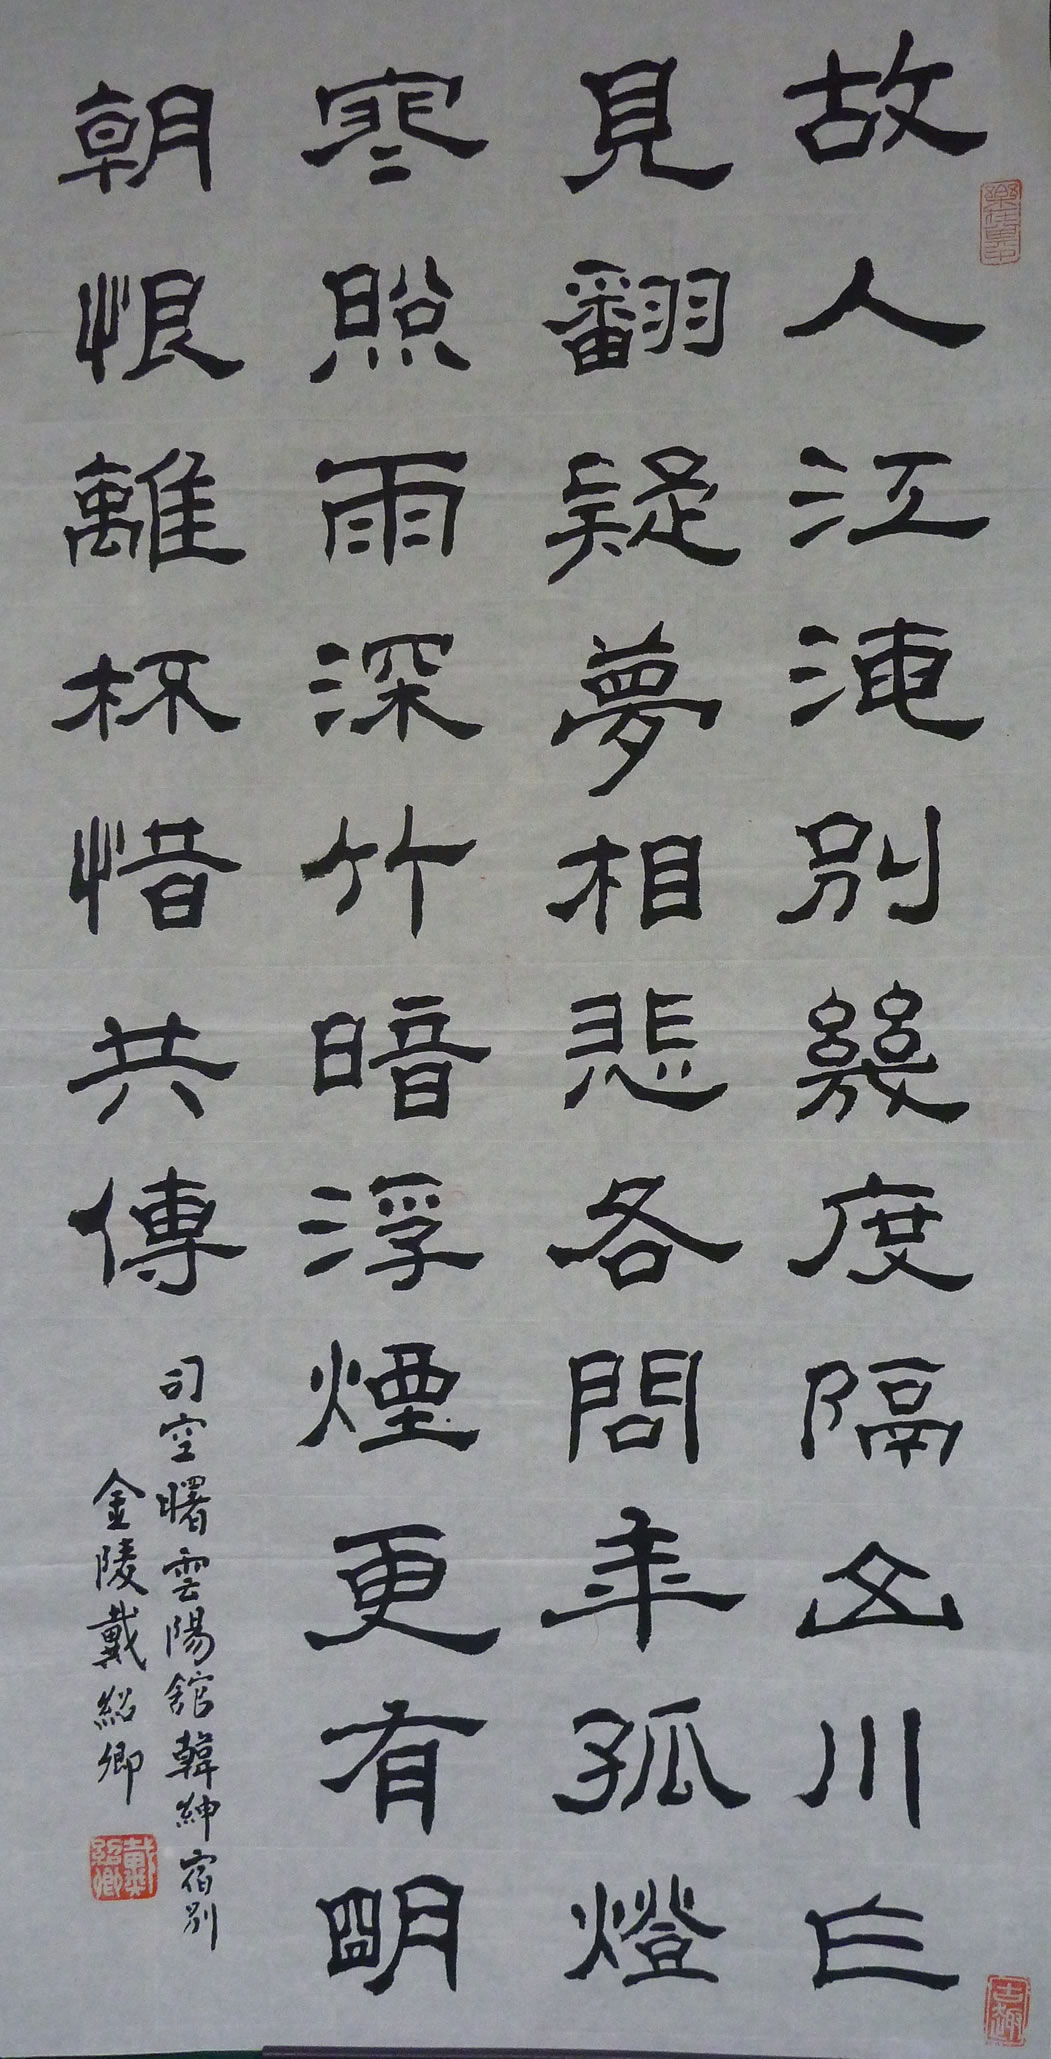 故人江海別幾度隔山川乍
見翻疑夢相悲各問年孤燈
寒照雨深竹暗浮煙更有明
朝恨離杯惜共傳
司空曙雲陽館韓紳宿別
金陵戴紹卿
戴紹卿
古趣